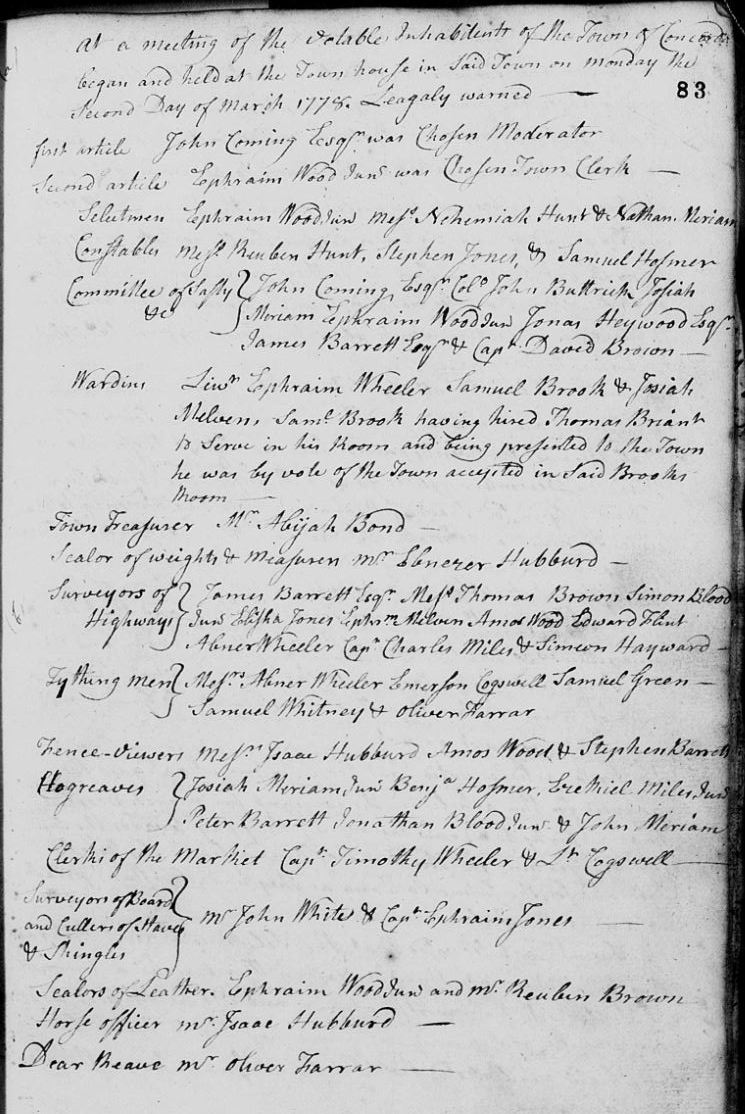 At a meeting of the votable Inhabitents of the Town of Concord
began and held at the Town house in Said Town on monday the
Second Day of March 1778. Leagaly warned —
83
first article John Coming Esqr. was Chosen Moderator
Second article Ephraim Wood Junr. was Chosen Town Clerk —
Selectmen Ephraim Wood Junr Messrs Nehemiah Hunt & Nathan. Meriam
Constables Messrs Reuben Hunt, Stephen Jones, & Samuel Hosmer
Committee of Safty } John Coming, Esqr. Colo. John Buttrick Josiah
&c } Meriam Ephraim Wood Junr Jonas Heywood Esqr.
James Barrett Esqr. & Capt. David Brown —
Wardins Liut. Ephraim Wheeler Samuel Brook & Josiah
Melven, Saml. Brook having hired Thomas Briant
to Serve in his Room and being presented to the Town
he was by vote of the Town accepted in Said Brooks
Room —
Town Treasurer Mr. Abijah Bond —
Sealor of weights & measuren mr. Ebenezer Hubburd —
Surveyors of } James Barrett Esqr. Messrs Thomas Brown Simon Blood
Highways } Junr. Elisha Jones Ephrm. Melven Amos Wood Edward Flint
Abner Wheeler Capt. Charles Miles & Simeon Hayward —
Tything men } Messrs. Abner Wheeler Emerson Cogswell Samuel Green —
Samuel Whitney & Oliver Farrar
Fence-Viewers Messrs. Isaac Hubburd Amos Wood & Stephen Barrett
Hogreaves } Josiah Meriam, Junr Benja. Hosmer, Ezekiel Miles Junr
Peter Barrett Jonathan Blood Junr. & John Meriam
Clerks of the Market Capt. Timothy Wheeler & Lt. Cogswell —
Surveyors of Board }
and Cullers of Staves } mr John White & Capt. Ephraim Jones —
& Shingles
Sealors of Leather. Ephraim Wood Junr and mr. Reuben Brown
Horse officer mr. Isaac Hubburd —
Dear Reave mr. Oliver Farrar —